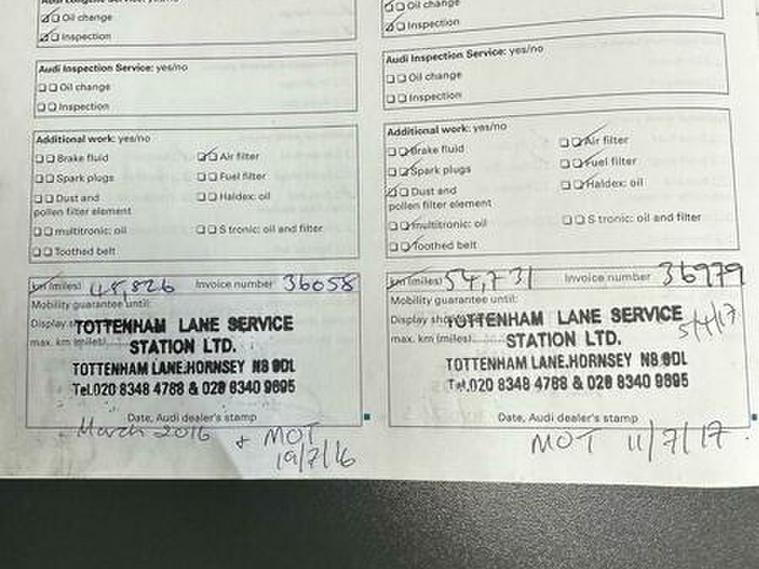 Oil change
Inspection
Audi Inspection Service: yes/no
Oil change
Inspection
Additional work: yes/no
Brake fluid
Air filter
Spark plugs
Fuel filter
Dust and
pollen filter element
Haldex: oil
multitronic: oil
S tronic: oil and filter
Toothed belt
km (miles) 45,826 Invoice number 36058
Mobility guarantee until:
Display
max. km (miles)
TOTTENHAM LANE SERVICE
STATION LTD.
TOTTENHAM LANE.HORNSEY N8 0DL
Tel.020 8348 4788 & 020 8340 9695
Date, Audi dealer's stamp
March 2016 + MOT
19/7/16
Oil change
Inspection
Audi Inspection Service: yes/no
Oil change
Inspection
Additional work: yes/no
Brake fluid
Air filter
Spark plugs
Fuel filter
Dust and
pollen filter element
Haldex: oil
multitronic: oil
S tronic: oil and filter
Toothed belt
km (miles) 54,731 Invoice number 36979
Mobility guarantee until:
Display
max. km (miles):
TOTTENHAM LANE SERVICE
STATION LTD.
TOTTENHAM LANE.HORNSEY N8 0DL
Tel.020 8348 4788 & 020 8340 9695
Date, Audi dealer's stamp
MOT 11/7/17.